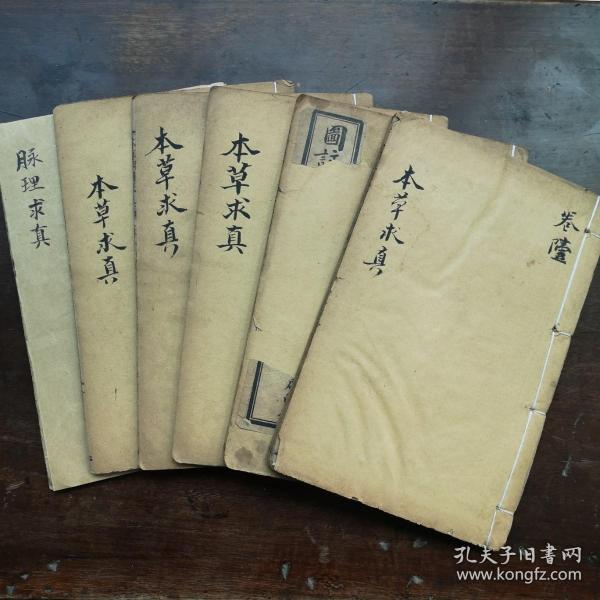 脉理求真
本草求真
本草求真
本草求真
圖註
本草求真
卷陸
孔夫子旧书网
www.kongfz.com